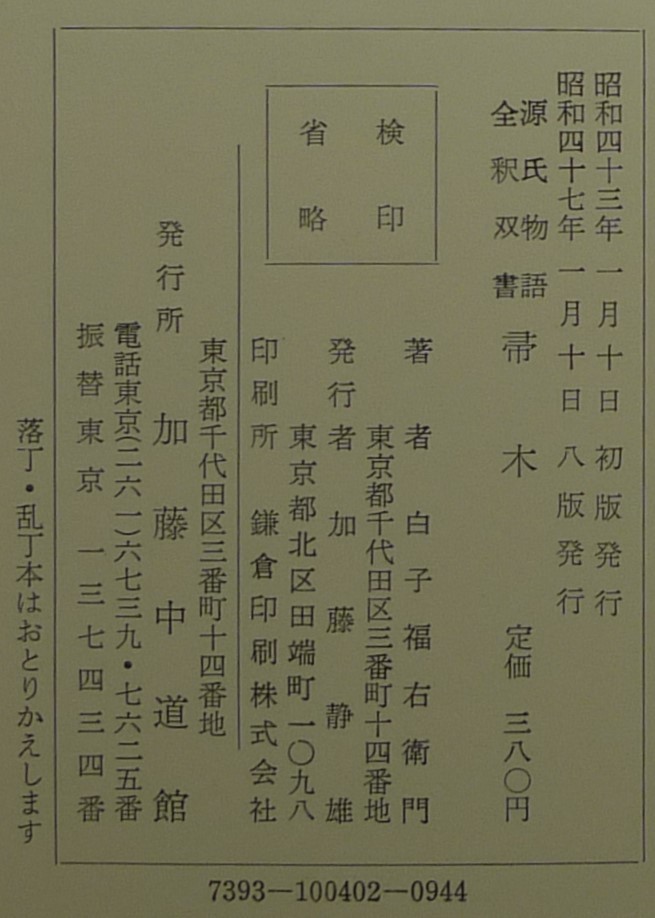 昭和四十三年一月十日 初版発行
昭和四十七年一月十日 八版発行
源氏物語
全釈双書
帚木 定価 三八〇円
検印
省略
著者 白子福右衛門
東京都千代田区三番町十四番地
発行者 加藤静雄
東京都北区田端町一〇九八
印刷所 鎌倉印刷株式会社
東京都千代田区三番町十四番地
発行所 加藤中道館
電話東京(二六一)六七三九・七六二五番
振替東京 一三七四三四番
落丁・乱丁本はおとりかえします
7393—100402—0944